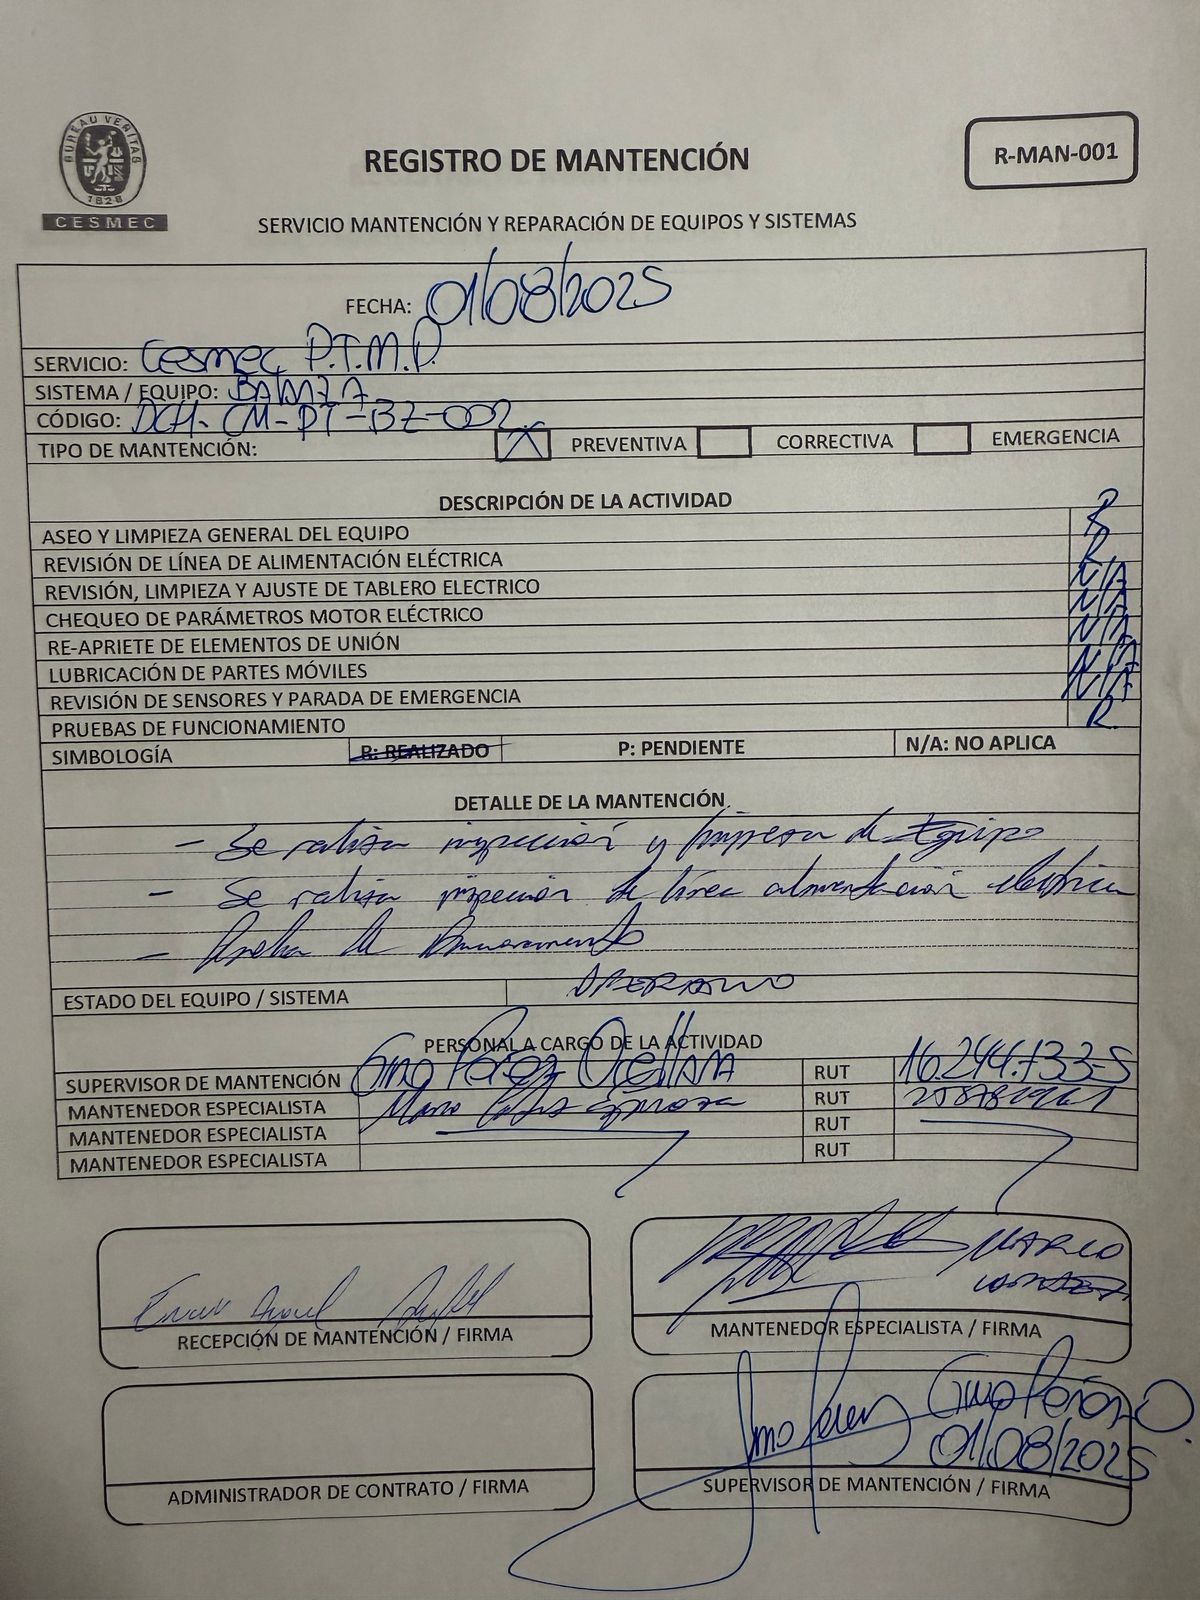 BUREAU VERITAS
1828
CESMEC
REGISTRO DE MANTENCIÓN
R-MAN-001
SERVICIO MANTENCIÓN Y REPARACIÓN DE EQUIPOS Y SISTEMAS
FECHA: 01/08/2025
SERVICIO: Cesmec P.T.M.P.
SISTEMA / EQUIPO: BALANZA
CÓDIGO: DCH-CM-PT-BZ-002
TIPO DE MANTENCIÓN: X PREVENTIVA CORRECTIVA EMERGENCIA
DESCRIPCIÓN DE LA ACTIVIDAD
ASEO Y LIMPIEZA GENERAL DEL EQUIPO R
REVISIÓN DE LÍNEA DE ALIMENTACIÓN ELÉCTRICA R
REVISIÓN, LIMPIEZA Y AJUSTE DE TABLERO ELECTRICO N/A
CHEQUEO DE PARÁMETROS MOTOR ELÉCTRICO N/A
RE-APRIETE DE ELEMENTOS DE UNIÓN N/A
LUBRICACIÓN DE PARTES MÓVILES N/A
REVISIÓN DE SENSORES Y PARADA DE EMERGENCIA N/A
PRUEBAS DE FUNCIONAMIENTO R
SIMBOLOGÍA R: REALIZADO P: PENDIENTE N/A: NO APLICA
DETALLE DE LA MANTENCIÓN
- Se realiza inspección y limpieza de Equipo
- Se realiza inspección de línea alimentación electrica
- Prueba de funcionamiento
ESTADO DEL EQUIPO / SISTEMA OPERATIVO
PERSONAL A CARGO DE LA ACTIVIDAD
SUPERVISOR DE MANTENCIÓN Gino Pérez Orellana RUT 16.244.733-5
MANTENEDOR ESPECIALISTA RUT
MANTENEDOR ESPECIALISTA RUT
MANTENEDOR ESPECIALISTA RUT
RECEPCIÓN DE MANTENCIÓN / FIRMA
MARCO
MANTENEDOR ESPECIALISTA / FIRMA
ADMINISTRADOR DE CONTRATO / FIRMA
Gino Pérez O.
01/08/2025
SUPERVISOR DE MANTENCIÓN / FIRMA